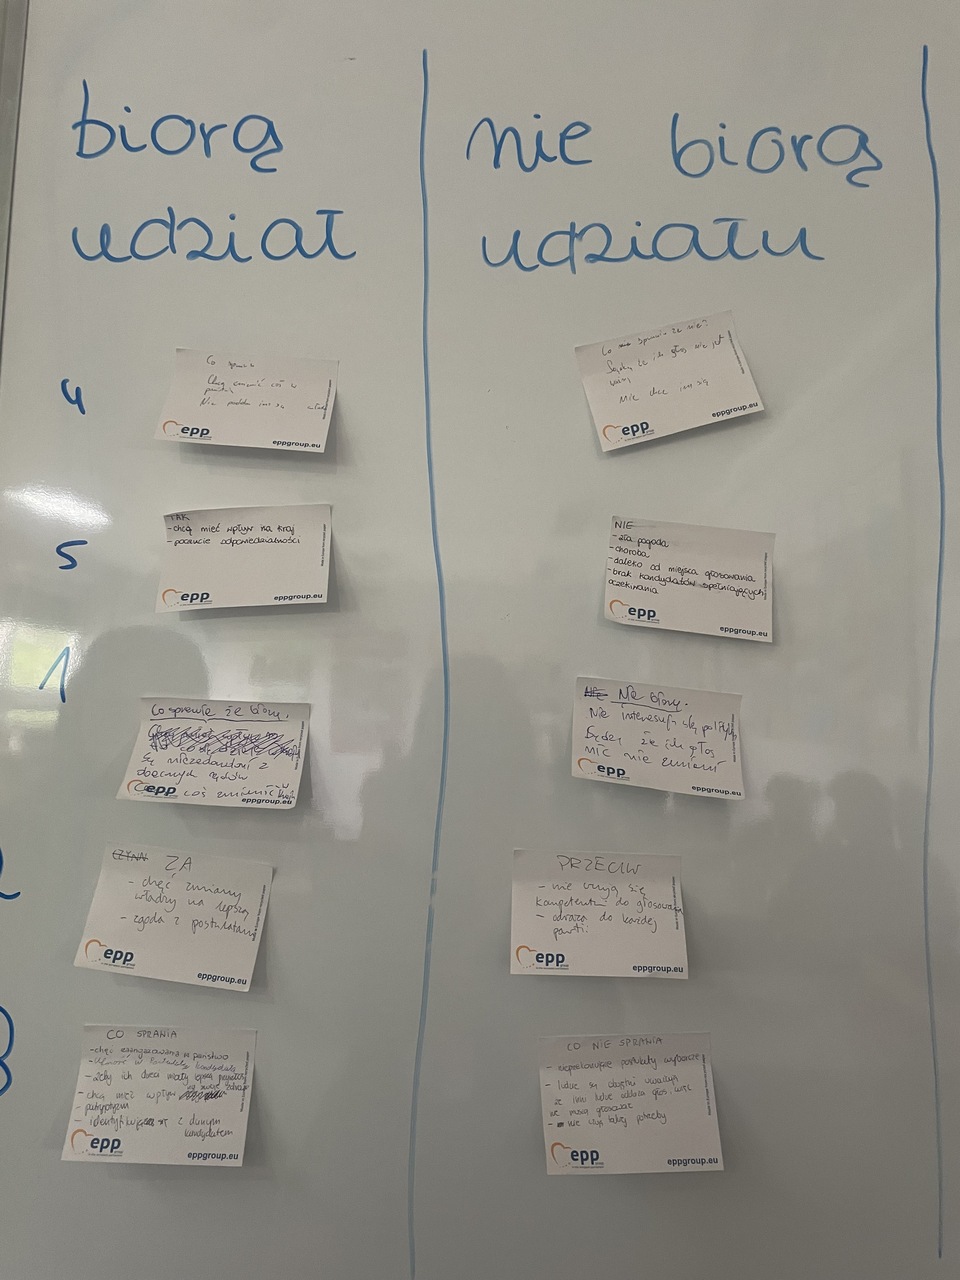 biorą
udział
nie biorą
udziału
4
Co
Chcą zmienić coś w
Nie
epp
eppgroup.eu
Co sprawia że nie?
Sądzą że ich głos nie jest
ważny
Nie chce im się
epp
eppgroup.eu
5
TAK
- chcą mieć wpływ na kraj
- poczucie odpowiedzialności
epp
eppgroup.eu
NIE
- zła pogoda
- choroba
- daleko od miejsca głosowania
- brak kandydatów spełniających
oczekiwania
epp
eppgroup.eu
1
Co sprawia że biorą.
Są niezadowoleni z
obecnych rządów
coś zmienić
epp
eppgroup.eu
Nie biorą.
Nie interesują się polityką
Sądzą że ich głos
nic nie zmieni
epp
2
ZA
- chęć zmiany
władzy na lepszą
- zgoda z postulatami
epp
eppgroup.eu
PRZECIW
- nie czują się
kompetentni do głosowania
- odraza do każdej
partii
epp
eppgroup.eu
3
CO SPRANIA
- chęć zaangażowania w państwo
- żeby ich dzieci miały lepszą
- chcą mieć wpływ
- patriotyzm
- identyfikują się z danym
kandydatem
epp
eppgroup.eu
CO NIE SPRANIA
- postulaty wyborcze
- ludzie są
że inni ludzie oddadzą głos, więc
nie muszą głosować
- nie czują takiej potrzeby
epp
eppgroup.eu